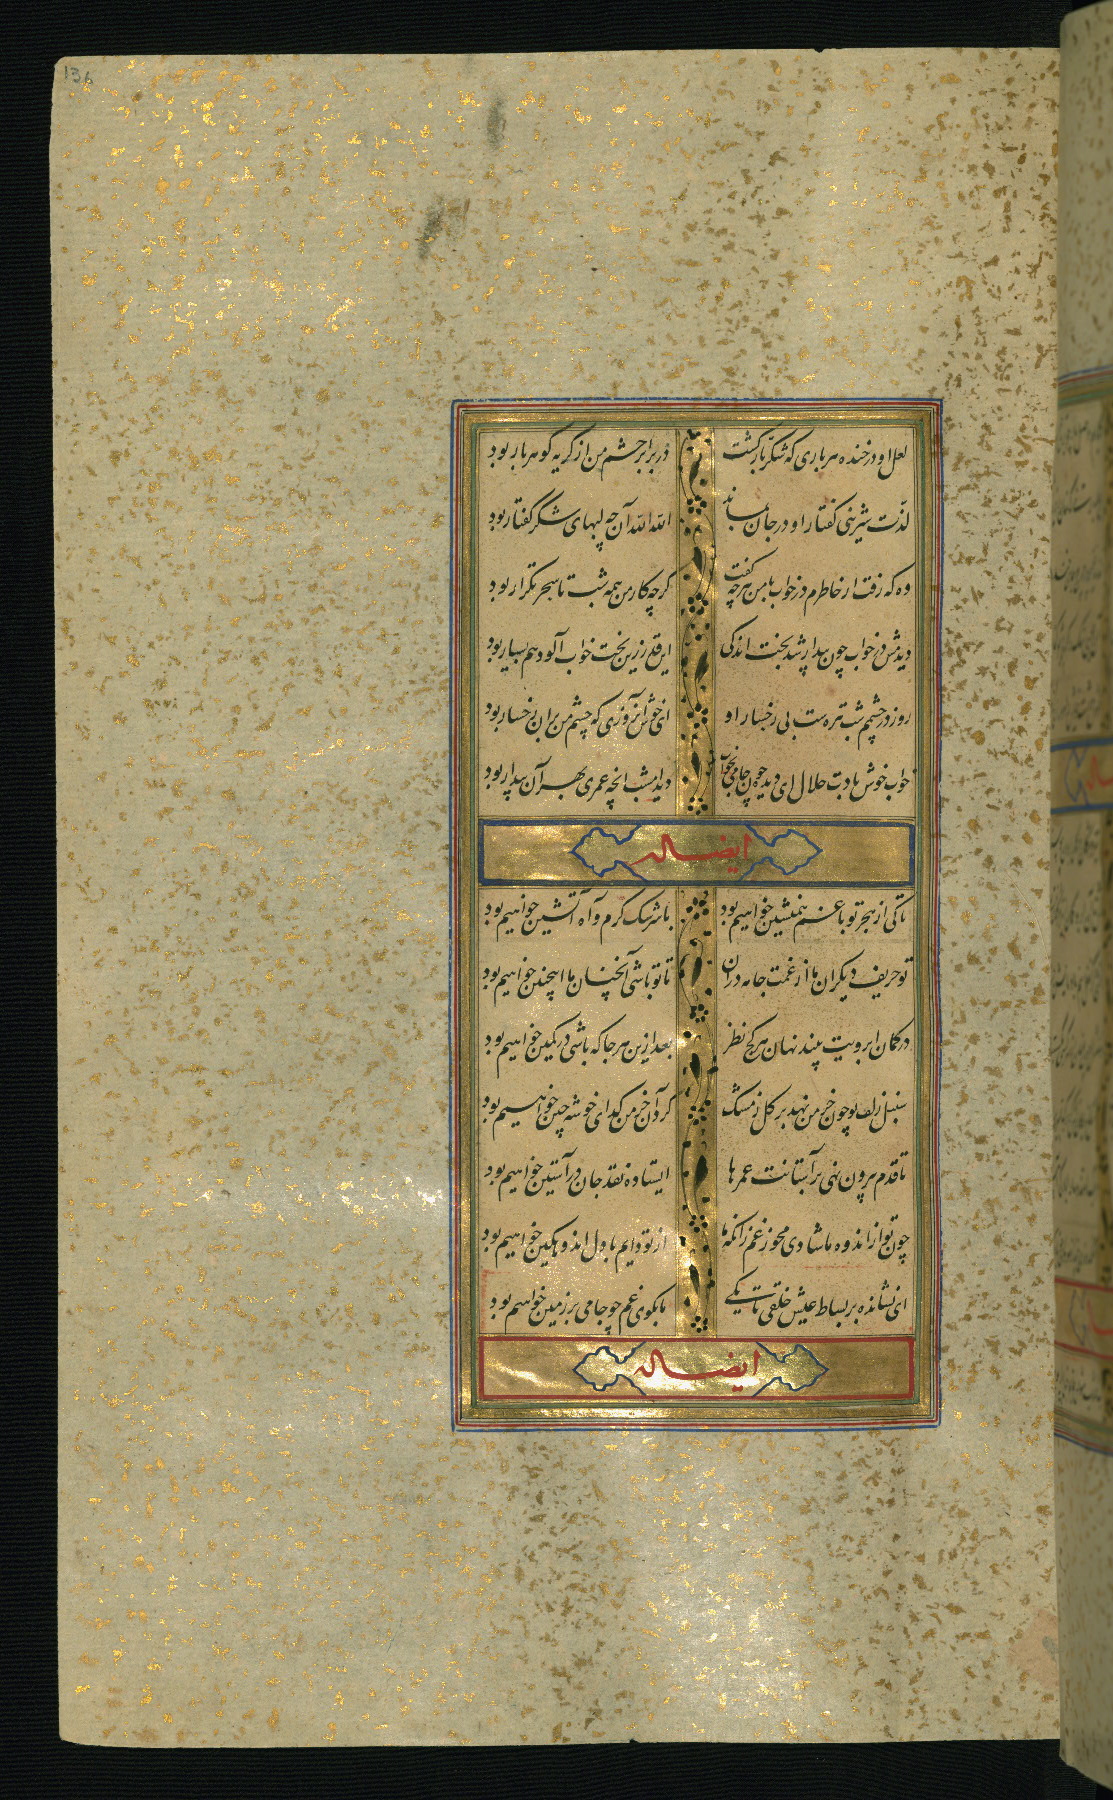 136
لعل او در خنده هر باری که شکر بار گشت در برابر چشم من از گریه گوهر بار بود
لذت شیرینی گفتار او در جان بماند الله الله آن چه لبهای شکر گفتار بود
وه که رفت از خاطرم در خواب با من هر چه گفت گرچه کار من همه شب تا سحر تکرار بود
دیدمش در خواب چون بیدار شد بخت اندکی این قدر زین بخت خواب آلود هم بسیار بود
روز در چشمم شب تیره ست بی رخسار او ای خوش آن روزی که چشم من بران رخسار بود
خواب خوش بادت حلال ای دیده چون جامی بخواب دید امشب آنچه عمری بهر آن بیدار بود
ایضا له
تا کی از هجر تو با غم همنشین خواهیم بود با سرشک گرم و آه آتشین خواهیم بود
تو حریف دیگران ما از غمت جامه دران تا تو باشی آنچنان ما اینچنین خواهیم بود
در کمان ابرویت بیند نهان هر کج نظر بعد ازین هر جا که باشی در کمین خواهیم بود
سنبل زلف تو چون خرمن نهد بر گل ز مشک گرد آن خرمن گدای خوشه چین خواهیم بود
تا قدم بیرون نهی بر آستانت عمرها ایستاده نقد جان در آستین خواهیم بود
چون تو از اندوه ما شادی مخور غم زانکه ما از تو دایم با دل اندوهگین خواهیم بود
ای نشانده بر بساط عیش خلقی تا بکی ما بکوی غم چو جامی بر زمین خواهیم بود
ایضا له